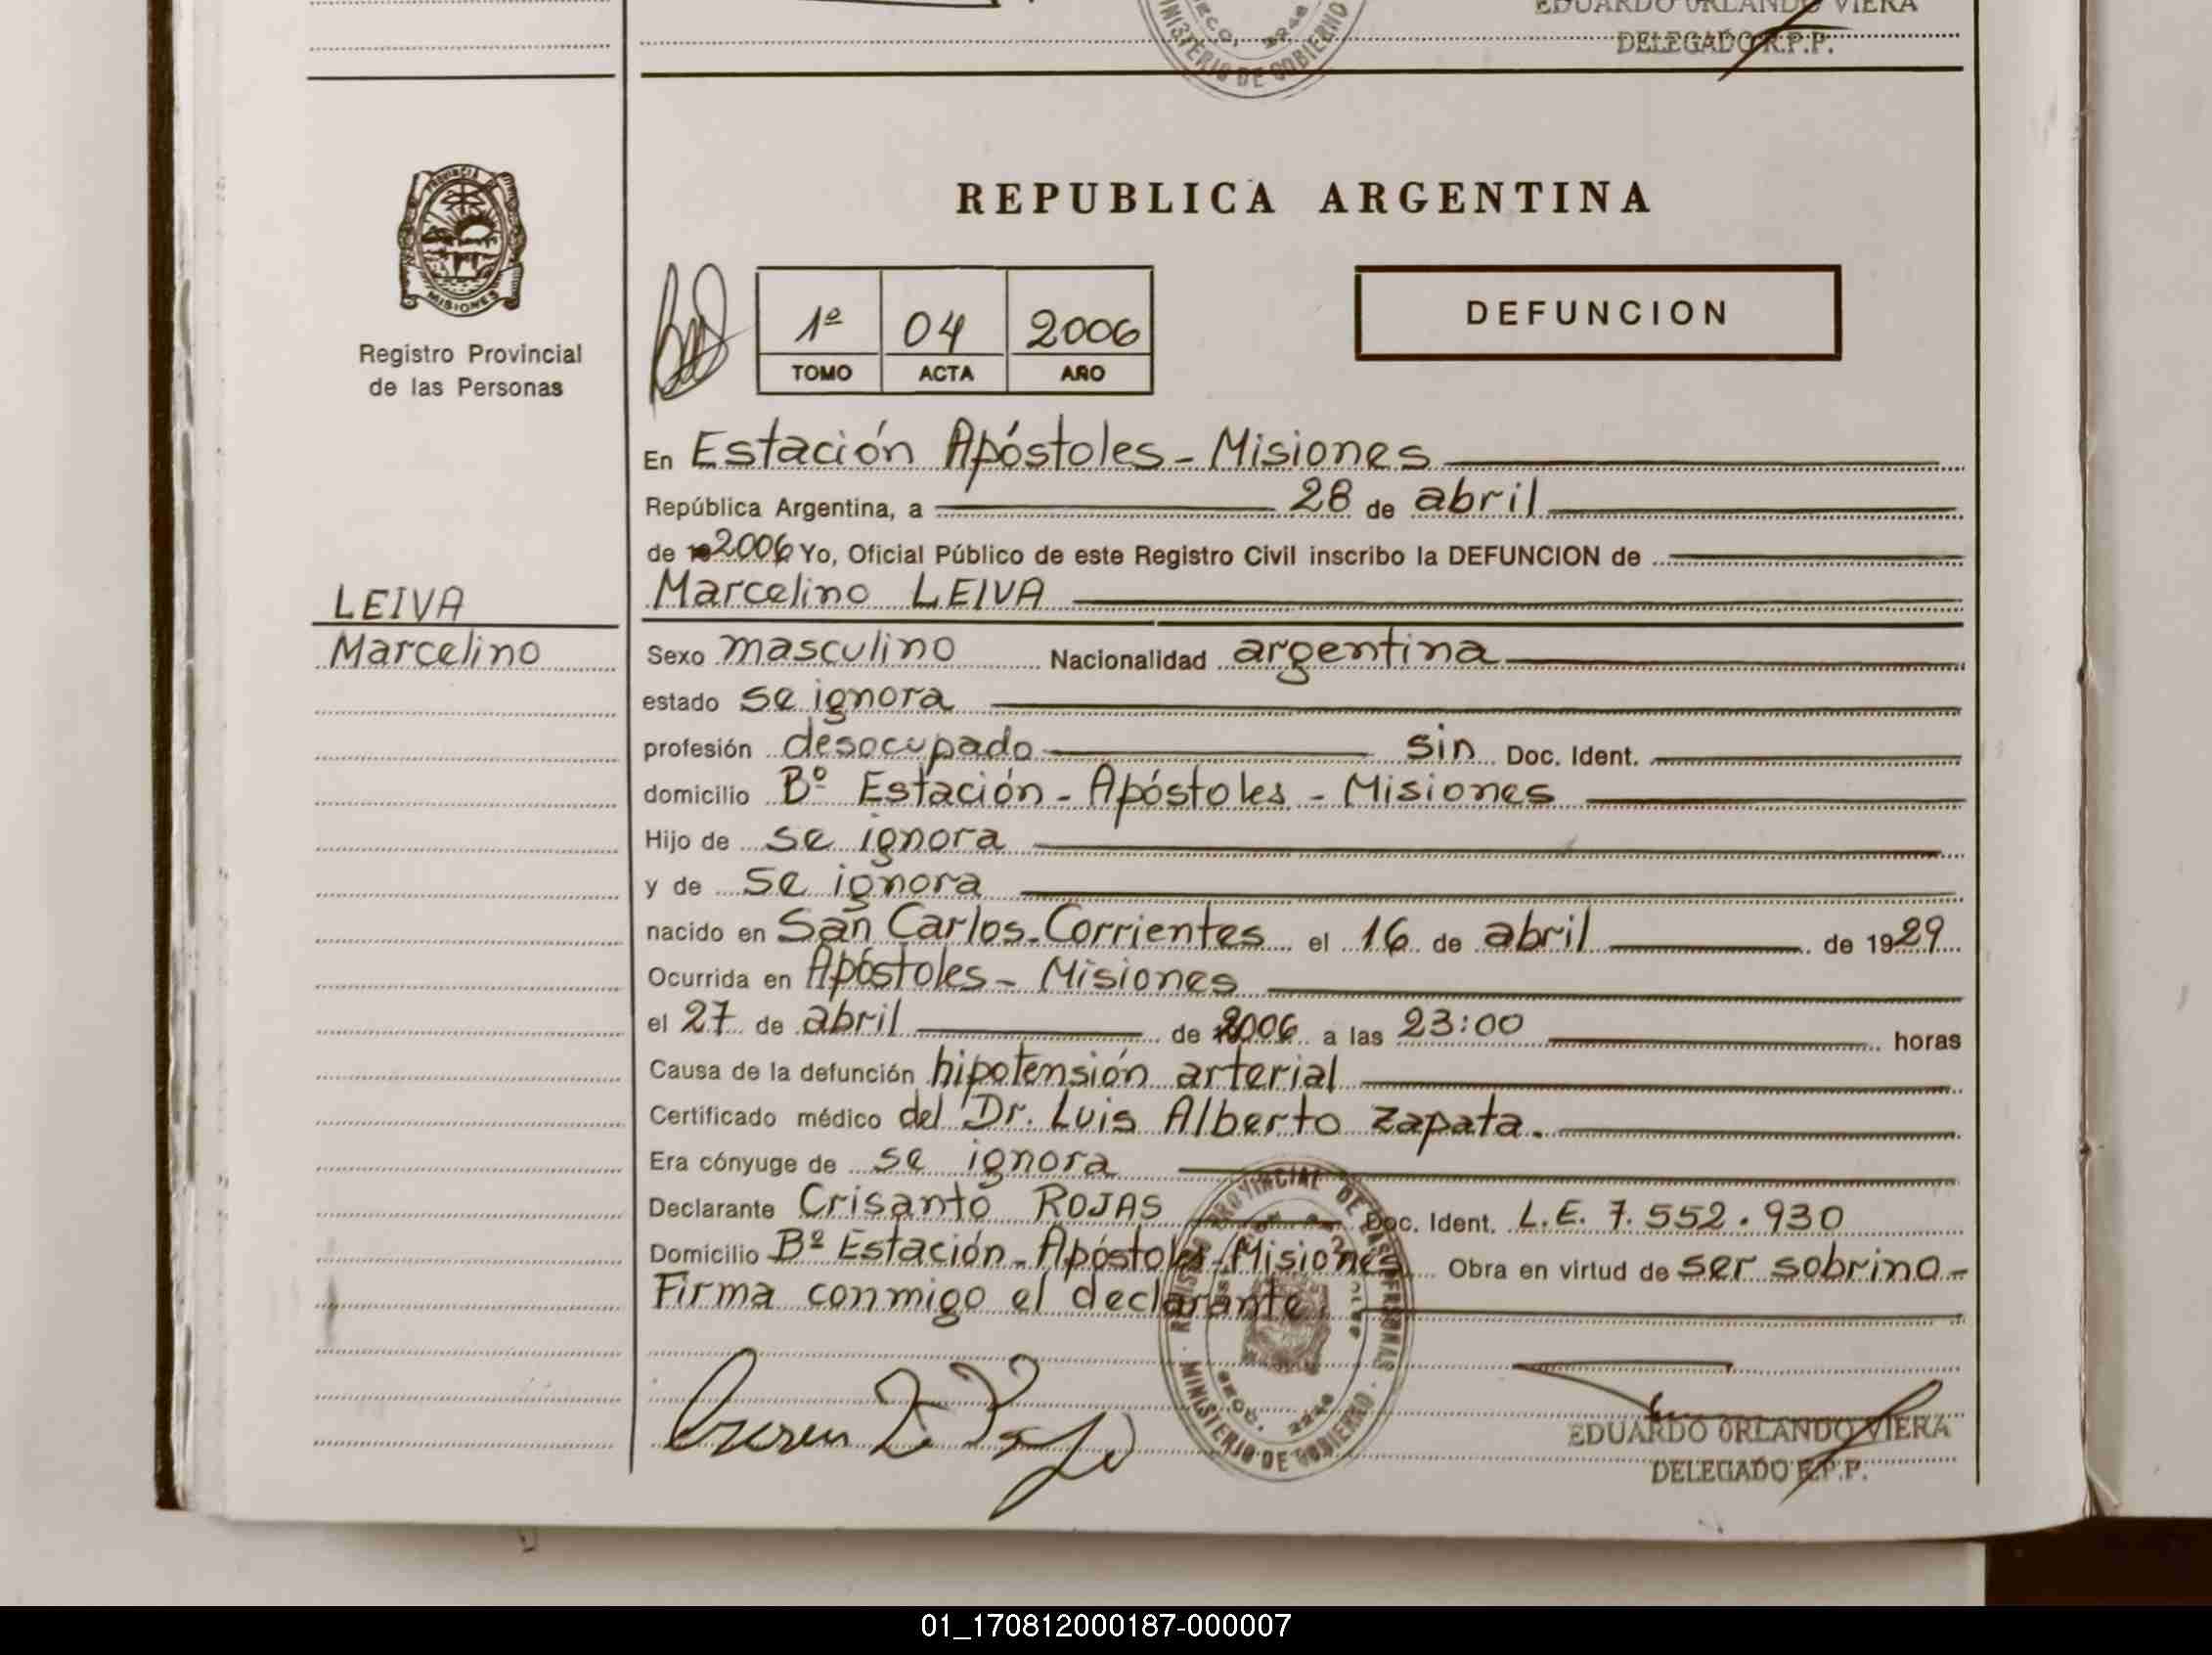 EDUARDO ORLANDO VIERA
DELEGADO R.P.P.
MINISTERIO DE GOBIERNO
PROVINCIA DE
MISIONES
Registro Provincial
de las Personas
REPUBLICA ARGENTINA
1º 04 2006
TOMO ACTA AÑO
DEFUNCION
En Estación Apóstoles - Misiones
República Argentina, a 28 de abril
de 2006 Yo, Oficial Público de este Registro Civil inscribo la DEFUNCION de
LEIVA
Marcelino
Marcelino LEIVA
Sexo masculino Nacionalidad argentina
estado se ignora
profesión desocupado sin Doc. Ident.
domicilio Bº Estación - Apóstoles - Misiones
Hijo de se ignora
y de se ignora
nacido en San Carlos - Corrientes el 16 de abril de 1929
Ocurrida en Apóstoles - Misiones
el 27 de abril de 2006 a las 23:00 horas
Causa de la defunción hipotensión arterial
Certificado médico del Dr. Luis Alberto Zapata.
Era cónyuge de se ignora
Declarante Crisanto ROJAS Doc. Ident. L.E. 7.552.930
Domicilio Bº Estación - Apóstoles - Misiones Obra en virtud de ser sobrino -
Firma conmigo el declarante.
REGISTRO PROVINCIAL DE LAS PERSONAS
MINISTERIO DE GOBIERNO
EDUARDO ORLANDO VIERA
DELEGADO R.P.P.
01_170812000187-000007